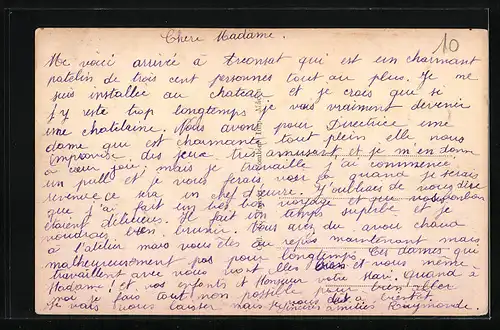 Chère Madame.
10
Me voici arrivée à qui est un charmant
patelin de trois cent personnes tout au plus. Je me
suis installée au chateau et je crois que si
j'y reste trop longtemps je vais vraiment devenir
une chatelaine. Nous avons pour Directrice une
dame qui est charmante tout plein elle nous
improvise des jeux très amusant et je m'en donne
à cœur joie; mais je travaille j'ai commencé
un pull et je vous ferais voir ça quand je serais
revenue ce sera un chef d'œuvre. J'oubliais de vous dire
que j'ai fait un très bon voyage et que vos bonbon
étaient délicieux. Il fait un temps superbe et je
voudrais bien brunir. Vous avez du avoir chaud
à l'atelier mais vous êtes au repos maintenant mais
malheureusement pas pour longtemps. Ces dames qui
travaillent avec vous vont elles bien et vous même
Madame! et vos enfants et Monsieur votre Mari. Quand à
moi je fais tout mon possible pour bien aller
Je vais vous laisser mais je vous dit à bientôt.
sincères amitiés Raymonde.